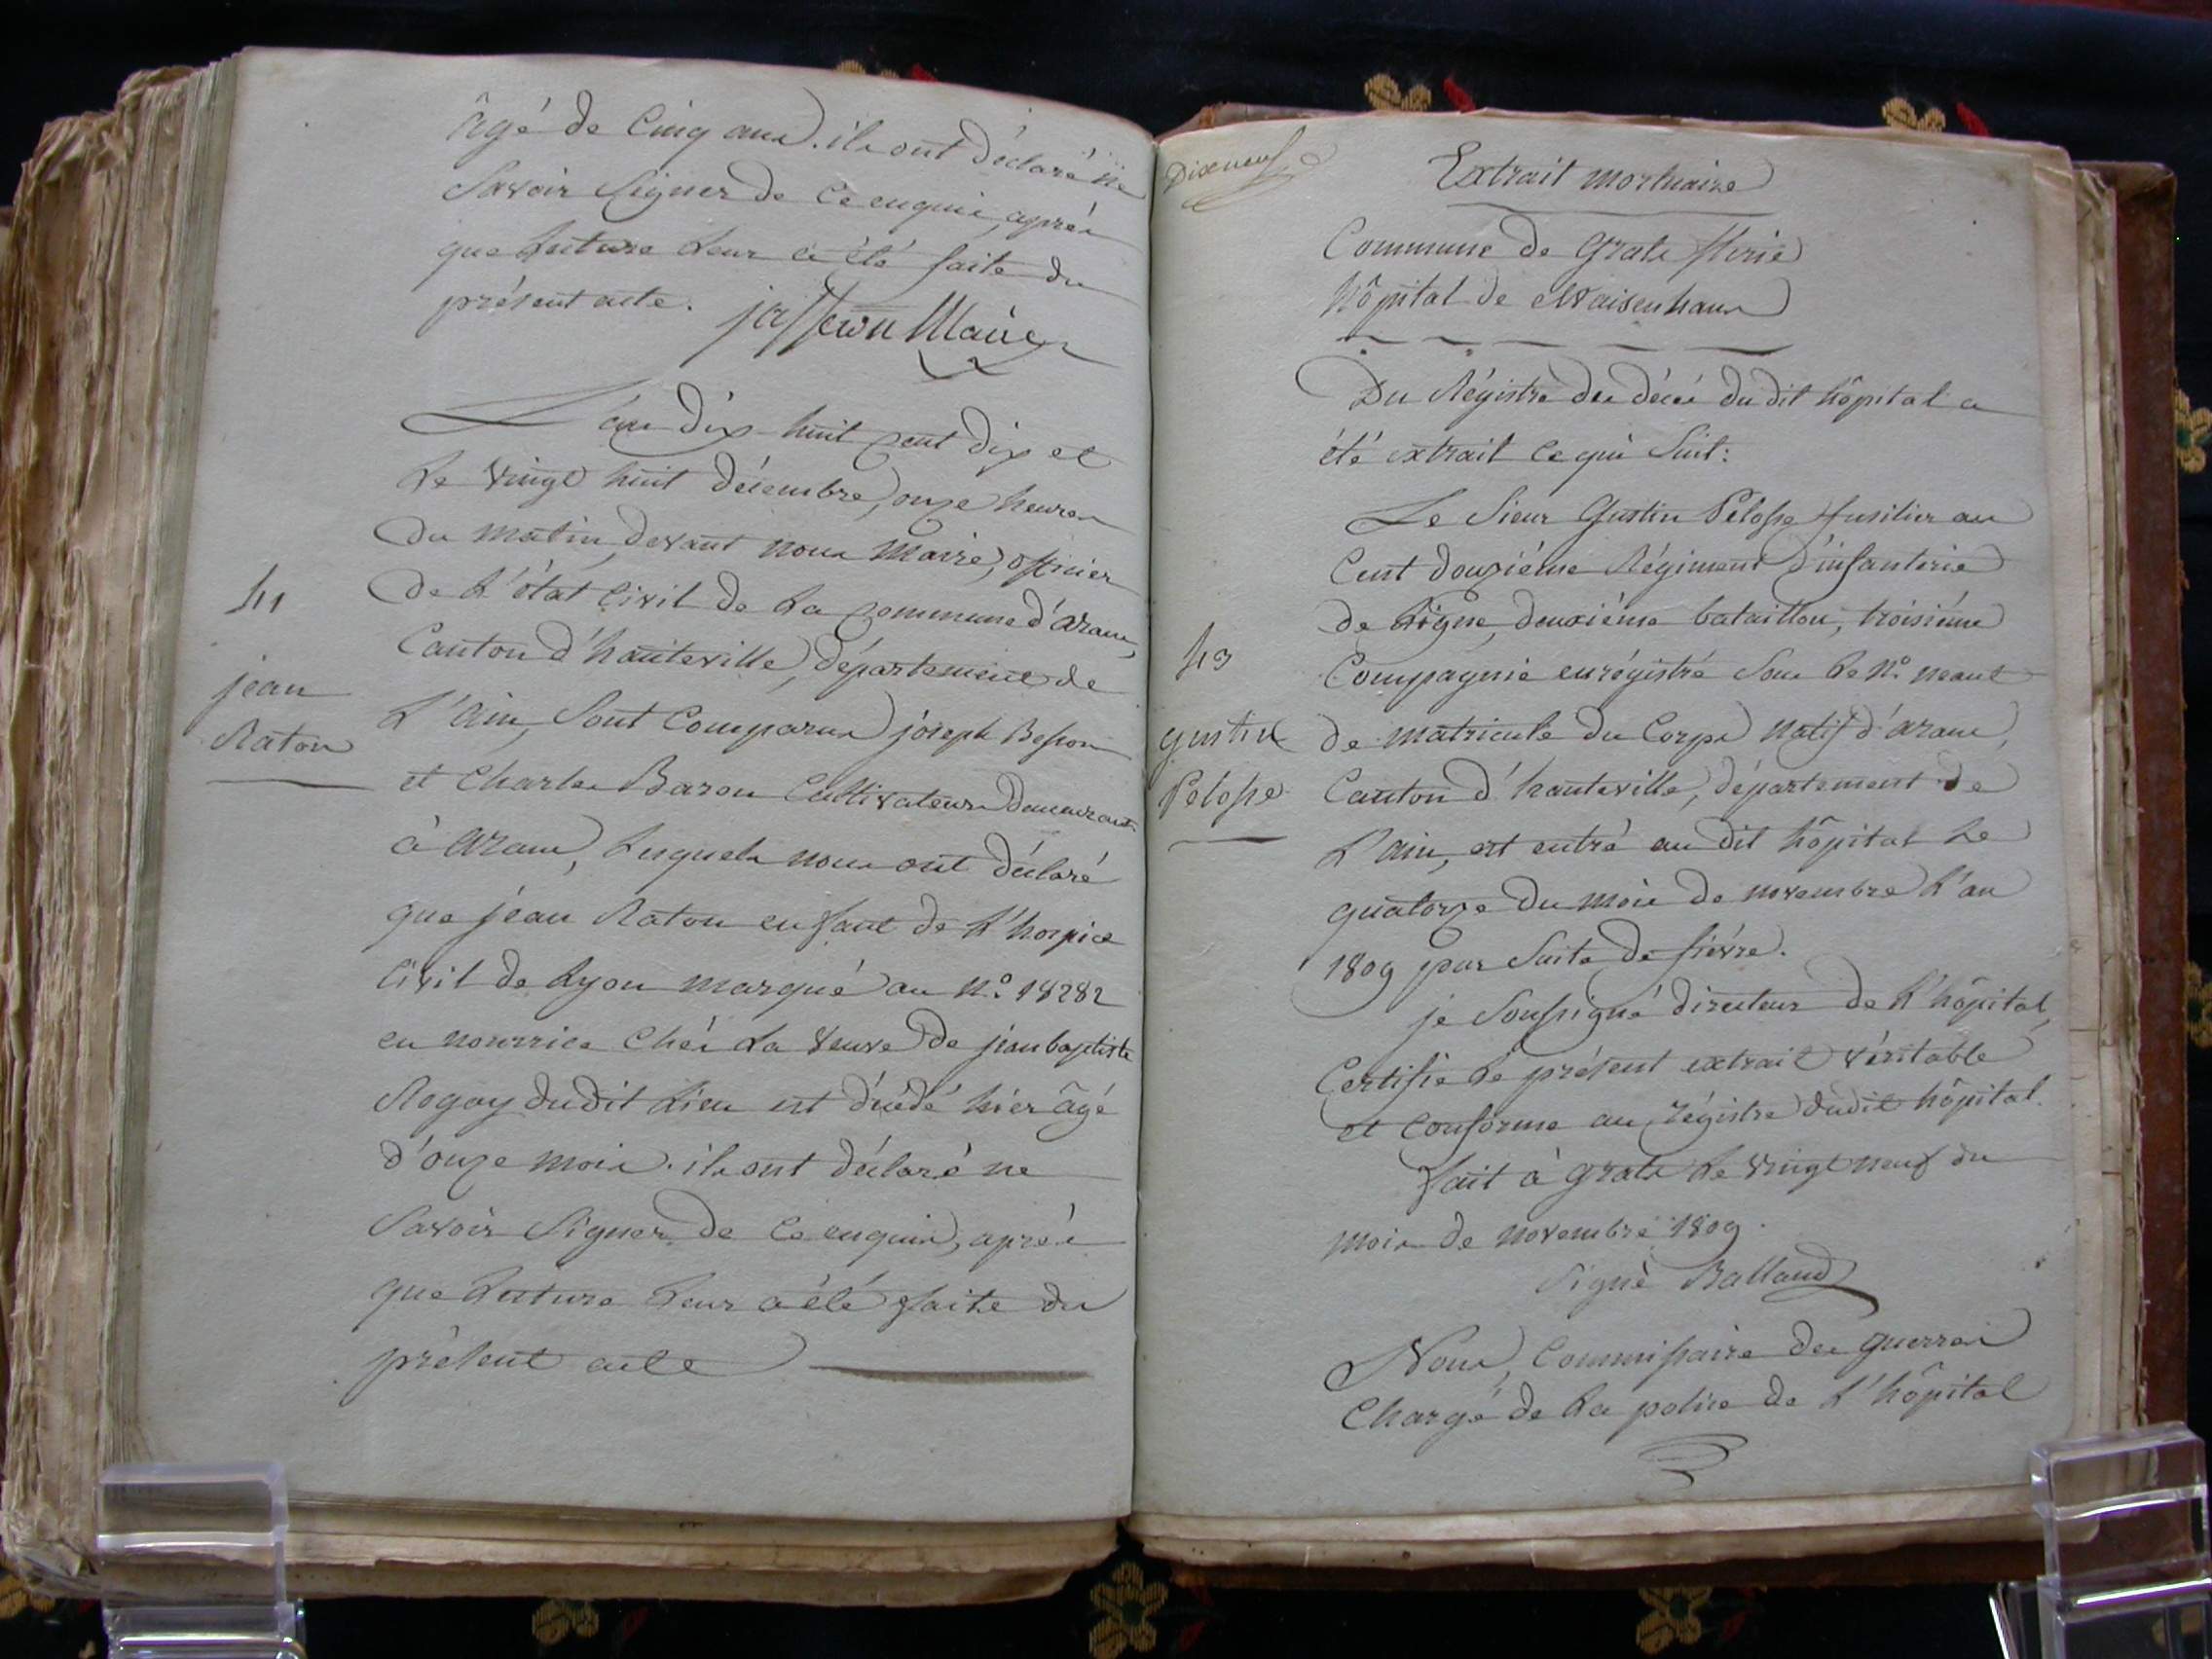 âgé de Cinq ans. ils ont déclaré ne
Savoir Signer de Ce enquis, après
que Lecture Leur a été faite du
présent acte. jasseron Maire
L'an dix huit cent dix et
Le vingt huit décembre, onze heures
du matin, devant nous Maire, officier
de L'état Civil de La Commune d'aranc,
Canton d'hauteville, département de
L'ain, Sont Comparus joseph Besson
et Charles Baron Cultivateurs demeurant
à aranc, Lesquels nous ont déclaré
que jean Raton enfant de L'hospice
Civil de Lyon marqué au N.º 18282
en nourrice Chés La Veuve de jean baptiste
Rogay dudit Lieu est décédé hier âgé
d'onze mois. ils ont déclaré ne
Savoir Signer de Ce enquis, après
que Lecture Leur a été faite du
présent acte
41
jean
Raton
Dixneuf
Extrait mortuaire
Commune de Grats
Hôpital de Waisenhaus
Du Régistre des décés du dit hôpital a
été extrait Ce qui Suit:
Le Sieur Gustin Pélosse fusilier au
Cent douziéme Régiment d'infanterie
de Ligne, deuxiéme bataillon, troisiéme
Compagnie enrégistré Sous Le N.º neant
de matricule du Corps natif d'aranc,
Canton d'hauteville, département de
L'ain, est entré au dit hôpital Le
quatorze du mois de novembre L'an
1809 par Suite de fiévre.
je Soussigné directeur de L'hôpital,
Certifie Le présent extrait véritable
et Conforme au régistre dudit hôpital.
fait à grats Le vingt neuf du
mois de novembre 1809.
Signé Balland
Nous, Commissaire des guerres
Chargé de La police de L'hôpital
43
gustin
Pélosse